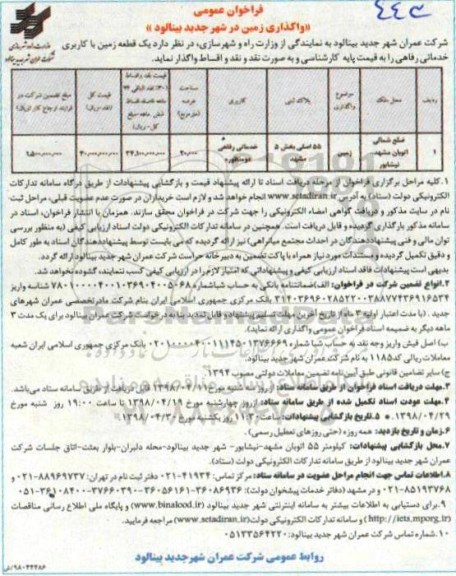 فراخوان عمومی
«واگذاری زمین در شهر جدید بینالود»
شرکت عمران شهر جدید بینالود به نمایندگی از وزارت راه و شهرسازی، در نظر دارد یک قطعه زمین با کاربری
خدماتی رفاهی را به قیمت پایه کارشناسی و به صورت نقد و نقد و اقساط واگذار نماید.
ردیف محل ملک موضوع واگذاری پلاک ثبتی کاربری مساحت عرصه (مترمربع)
۱ ضلع شمالی اتوبان مشهد- نیشابور زمین ۵۵ اصلی بخش ۵ مشهد خدماتی رفاهی
۱. کلیه مراحل برگزاری فراخوان از مرحله دریافت اسناد تا ارائه پیشنهاد قیمت و بازگشایی پیشنهادات از طریق درگاه سامانه تدارکات
الکترونیکی دولت (ستاد) به آدرس www.setadiran.ir انجام خواهد شد و لازم است خریداران در صورت عدم عضویت قبلی، مراحل ثبت
نام در سایت مذکور و دریافت گواهی امضاء الکترونیکی را جهت شرکت در فراخوان محقق سازند. همزمان با انتشار فراخوان، اسناد در
سامانه مذکور بارگذاری گردیده و قابل دریافت است. همچنین در سامانه تدارکات الکترونیکی دولت اسناد ارزیابی کیفی (به منظور بررسی
توان مالی و فنی پیشنهاددهندگان در احداث مجتمع میانراهی) نیز ارائه گردیده که می بایست توسط پیشنهاددهندگان اسناد به طور کامل
و دقیق تکمیل گردیده و مستندات مورد نیاز همراه با پاکت تضمین به دبیرخانه حراست شرکت عمران شهر جدید بینالود ارائه گردد.
بدیهی است پیشنهادات فاقد اسناد ارزیابی کیفی و پیشنهاداتی که امتیاز لازم را در ارزیابی کیفی کسب ننمایند، گشوده نخواهد شد.
۲. انواع تضمین شرکت در فراخوان:
بانک مرکزی جمهوری اسلامی ایران بنام شرکت مادرتخصصی عمران شهرهای
ماهه دیگر به ضمیمه اسناد فراخوان عمومی واگذاری ارائه نماید).
بانک مرکزی جمهوری اسلامی ایران شعبه
معاملات ریالی کد ۱۱۸۵ به نام شرکت عمران شهر جدید بینالود.
ج) سایر تضامین قانونی طبق آیین نامه تضمین معاملات دولتی مصوب ۱۳۹۴
۳. مهلت دریافت اسناد فراخوان از طریق سامانه ستاد:
۴. مهلت عودت اسناد تکمیل شده از طریق سامانه ستاد: از روز چهارشنبه مورخ ۱۳۹۸/۰۴/۱۹ تا ساعت ۱۹:۰۰ روز شنبه مورخ
۱۳۹۸/۰۴/۲۹. ۵. تاریخ بازگشایی پیشنهادات:
۶. زمان و تاریخ بازدید: همه روزه (حتی روزهای تعطیل رسمی).
۷. محل بازگشایی پیشنهادات: کیلومتر ۵۵ اتوبان مشهد-نیشابور- شهر جدید بینالود-محله دلبران-بلوار بعثت-اتاق جلسات شرکت
عمران شهر جدید بینالود از طریق سامانه تدارکات الکترونیکی دولت (ستاد).
۸. اطلاعات تماس جهت انجام مراحل عضویت در سامانه ستاد: مرکز تماس: ۴۱۹۳۴-۰۲۱ دفتر ثبت نام در تهران: ۸۸۹۶۹۷۳۷-۰۲۱ و
۸۵۱۹۳۷۶۸-۰۲۱ و در مشهد (دفاتر خدمات پیشخوان دولت):
۹. برای دستیابی به اطلاعات بیشتر به سامانه اینترنتی شهر جدید بینالود (www.binalood.ir) و پایگاه ملی اطلاع رسانی مناقصات
(http://iets.mporg.ir) و سامانه تدارکات الکترونیکی دولت (www.setadiran.ir) مراجعه فرمایید.
۱۰. شماره تماس شرکت عمران شهر جدید بینالود:
روابط عمومی شرکت عمران شهر جدید بینالود